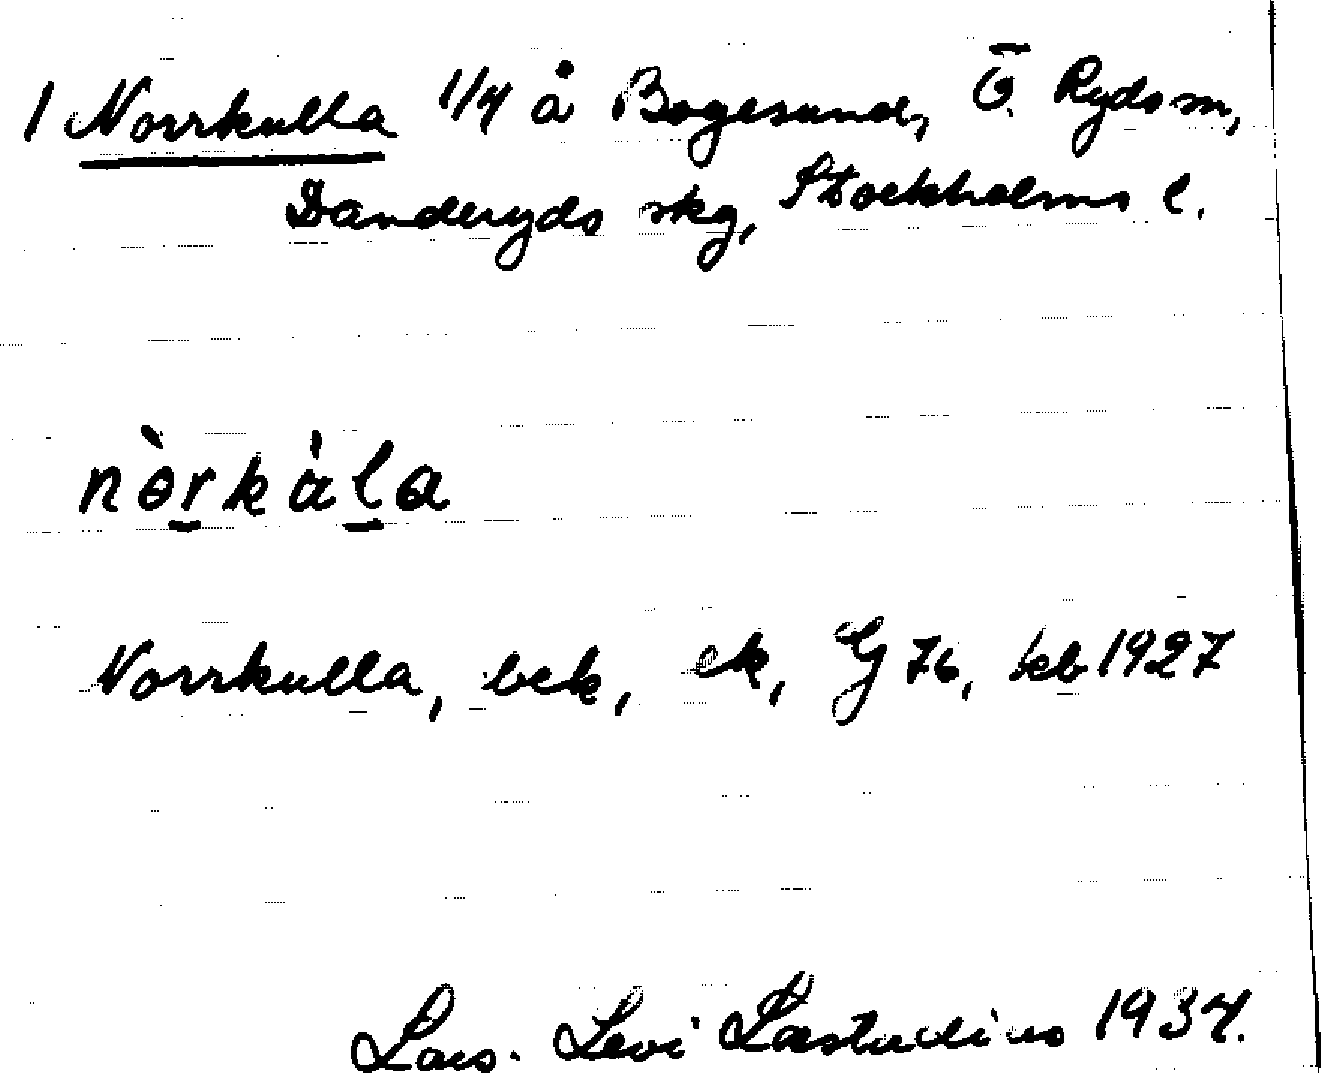 1 Norrkulla 1/4 å Bogesund, Ö. Ryds sn,
Danderyds skg, Stockholms l.
nɵ̀rkàla
Norrkulla, bek, ek, G 76, kb 1927
Lars-Levi Læstadius 1934.